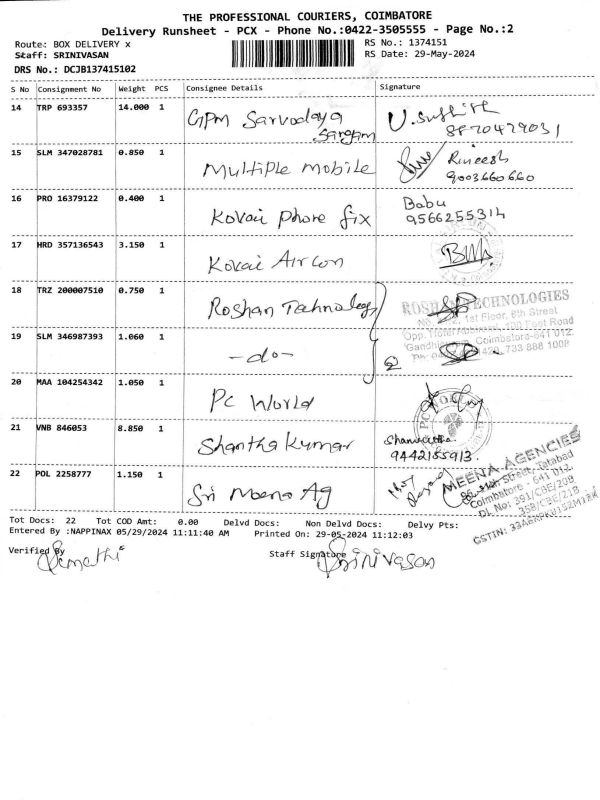 THE PROFESSIONAL COURIERS, COIMBATORE
Delivery Runsheet - PCX - Phone No.:0422-3505555 - Page No.:2
Route: BOX DELIVERY x
RS No.: 1374151
Staff: SRINIVASAN
RS Date: 29-May-2024
DRS No.: DCJB137415102
S No Consignment No Weight PCS Consignee Details Signature
14 TRP 693357 14.000 1 GPM Sarvodaya
Sangam
8870479031
15 SLM 347028781 0.850 1 Multiple mobile
Rineesh
9003660660
16 PRO 16379122 0.400 1 Kovai phone fix
Babu
9566255314
17 HRD 357136543 3.150 1 Kovai Aircon
18 TRZ 200007510 0.750 1 Roshan Tahnology
ROSHAN TECHNOLOGIES
1st Floor, 6th Street
100 Feet Road
Coimbatore-641 012.
733 888 1008
19 SLM 346987393 1.060 1 -do-
2
20 MAA 104254342 1.050 1 PC World
PC WORLD
21 VNB 846053 8.850 1 Shantha Kumar
9442155913.
22 POL 2258777 1.150 1 Sri Meena Ag
MEENA AGENCIES
Street, Tatabad
Coimbatore - 641 012.
DL No: 391/CBE/20B
358/CBE/21B
Tot Docs: 22 Tot COD Amt: 0.00 Delvd Docs: Non Delvd Docs: Delvy Pts:
Entered By :NAPPINAX 05/29/2024 11:11:40 AM Printed On: 29-05-2024 11:12:03
Verified By
Staff Signature
Srinivasan